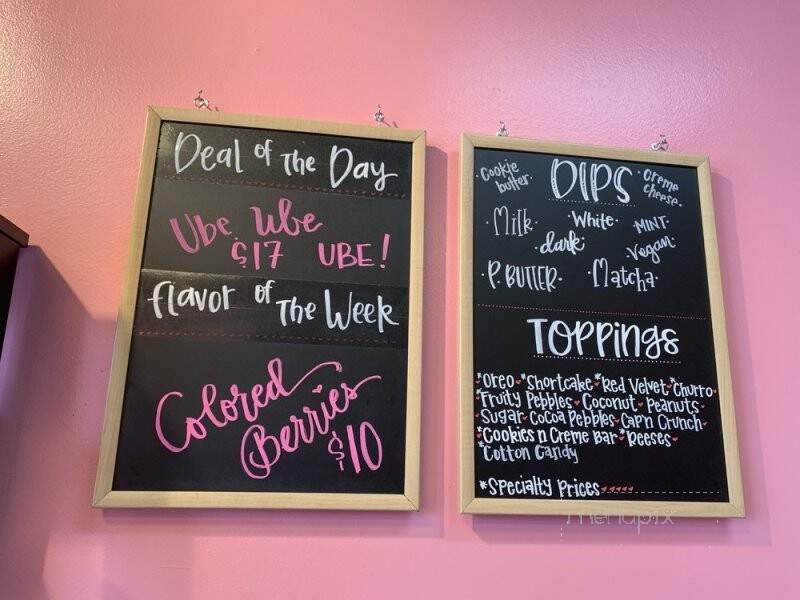 Deal of The Day
Ube Ube
$17 UBE!
flavor of The Week
Colored
Berries
$10
DIPS
Cookie butter
Creme cheese
·Milk· White· MINT·
dark· Vegan·
·P. BUTTER· Matcha·
TOPPINGS
*Oreo *Shortcake *Red Velvet *Churro
*Fruity Pebbles Coconut Peanuts
Sugar Cocoa Pebbles Cap'n Crunch
*Cookies n Creme Bar *Reeses
*Cotton Candy
*Specialty Prices
menupix